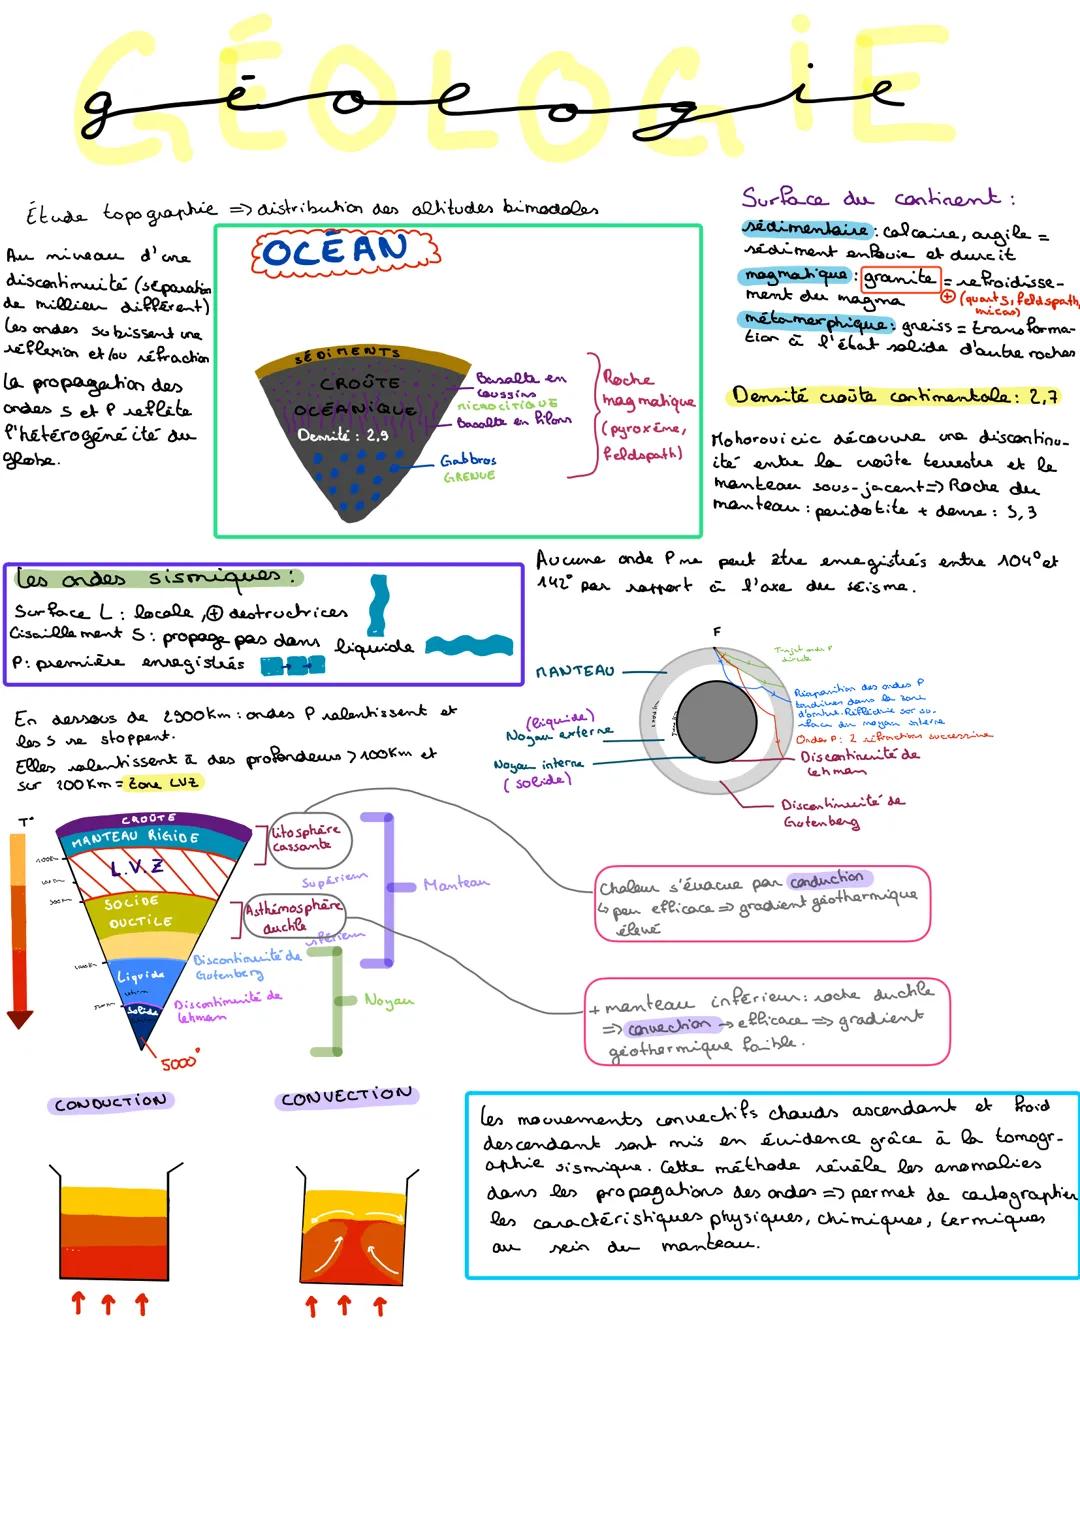 GÉOLOGIE
géologie
Étude topographie => distribution des altitudes bimodales
Au niveau d'une
discontinuité (séparation
de millieu différent)
les ondes subissent une
réflexion et/ou réfraction
La propagation des
ondes S et P reflète
l'hétérogénéité du
globe.
OCÉAN
SÉDIMENTS
CROÛTE
OCÉANIQUE
Densité : 2,9
Basalte en
coussins
MICROLITIQUE
Basalte en filons
Gabbros
GRENUE
Roche
magmatique
(pyroxène,
feldspath)
Surface du continent :
sédimentaire : calcaire, argile =
sédiment enfouie et durcit
magmatique : granite = refroidisse-
ment du magma
⊕ (quarts, feldspath,
micas)
métamorphique : gneiss = transforma-
tion à l'état solide d'autre roches
Densité croûte continentale : 2,7
Mohorovicic découvre une discontinu-
ité entre la croûte terrestre et le
manteau sous-jacent => Roche du
manteau : péridotite + dense : 3,3
Les ondes sismiques :
Surface L : locale, ⊕ destructrices
Cisaillement S : propage pas dans liquide
P : première enregistrés
Aucune onde P ne peut être enregistrés entre 104° et
142° par rapport à l'axe du séisme.
F
MANTEAU
(liquide)
Noyau externe
Noyau interne
(solide)
Trajet onde P
directe
Réapparition des ondes P
tardives dans la zone
d'ombre. Réfléchie sur su-
face du noyau interne
Ondes P : 2 réfraction successive
Discontinuité de
Lehman
Discontinuité de
Gutenberg
En dessous de 2900km : ondes P ralentissent et
les S se stoppent.
Elles ralentissent à des profondeurs > 100Km et
sur 200Km = Zone LVZ
T°
CROÛTE
MANTEAU RIGIDE
L.V.Z
SOLIDE
DUCTILE
Liquide
Solide
5000°
Litosphère
cassante
Asthénosphère
ductile
Supérieur
inférieur
Manteau
Discontinuité de
Gutenberg
Discontinuité de
Lehman
Noyau
Chaleur s'évacue par conduction
↳ peu efficace => gradient géothermique
élevé
+ manteau inférieur : roche ductile
=> convection → efficace => gradient
géothermique faible.
CONDUCTION
CONVECTION
Les mouvements convectifs chauds ascendant et froid
descendant sont mis en évidence grâce à la tomogr-
aphie sismique. Cette méthode révèle les anomalies
dans les propagations des ondes => permet de cartographier
les caractéristiques physiques, chimiques, termiques
au sein du manteau.